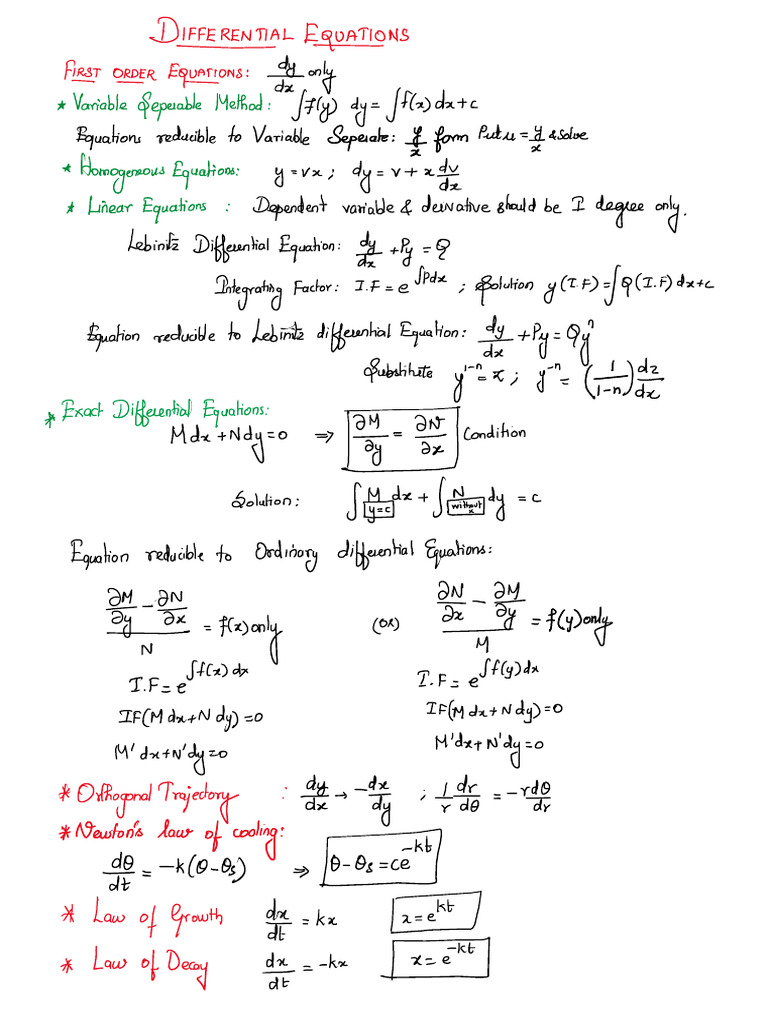 DIFFERENTIAL EQUATIONS
FIRST ORDER EQUATIONS: dy/dx only
* Variable Seperable Method: ∫f(y) dy = ∫f(x) dx + c
Equations reducible to Variable Seperate: y/x form Put u = y/x & solve
* Homogeneous Equations: y = vx ; dy = v + x dv/dx
* Linear Equations : Dependent variable & derivative should be I degree only.
Lebinitz Differential Equation: dy/dx + Py = Q
Integrating Factor: I.F = e^∫Pdx ; Solution y(I.F) = ∫Q(I.F) dx + c
Equation reducible to Lebinitz differential Equation: dy/dx + Py = Qy^n
Substitute y^1-n = z ; y^-n = (1/1-n) dz/dx
* Exact Differential Equations:
Mdx + Ndy = 0 ⇒ ∂M/∂y = ∂N/∂x Condition
Solution: ∫ M dx + ∫ N dy = c
y=c without x
Equation reducible to Ordinary differential Equations:
∂M/∂y - ∂N/∂x / N = f(x) only (OR) ∂N/∂x - ∂M/∂y / M = f(y) only
I.F = e^∫f(x) dx I.F = e^∫f(y) dx
IF(M dx + N dy) = 0 IF(M dx + N dy) = 0
M' dx + N' dy = 0 M' dx + N' dy = 0
* Orthogonal Trajectory : dy/dx → -dx/dy ; 1/r dr/dθ = -r dθ/dr
* Newton's law of cooling:
dθ/dt = -k(θ - θs) ⇒ θ - θs = ce^-kt
* Law of Growth dx/dt = kx x = e^kt
* Law of Decay dx/dt = -kx x = e^-kt